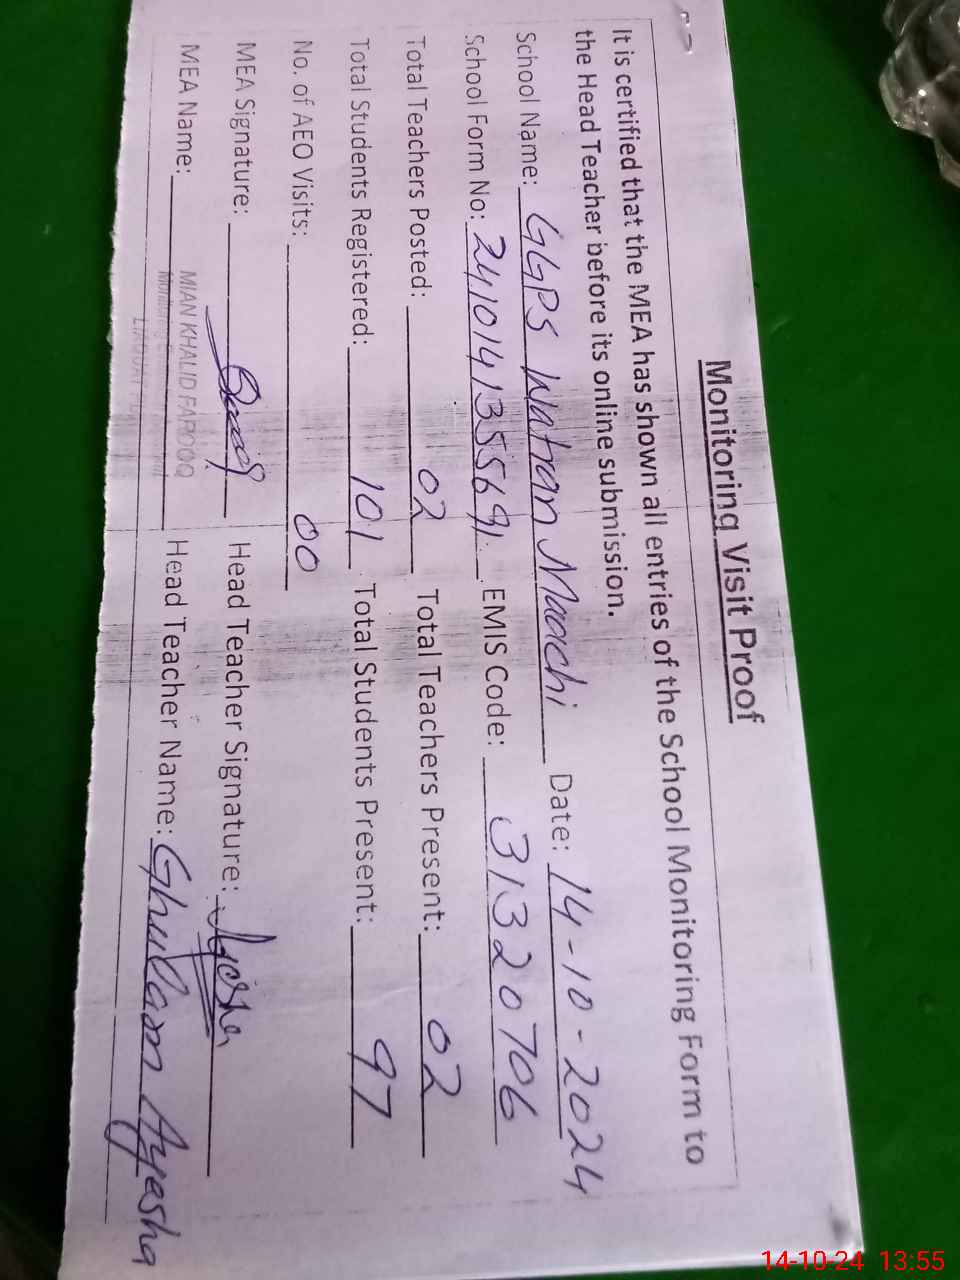 Monitoring Visit Proof
It is certified that the MEA has shown all entries of the School Monitoring Form to
the Head Teacher before its online submission.
School Name: GGPS Watran Maachi Date: 14-10-2024
School Form No: 2410141355691 EMIS Code: 31320706
Total Teachers Posted: 02 Total Teachers Present: 02
Total Students Registered: 101 Total Students Present: 97
No. of AEO Visits: 00
MEA Signature: Head Teacher Signature: Ayesha
MEA Name: MIAN KHALID FAROOQ Head Teacher Name: Ghulam Ayesha
Monitoring
14-10-24 13:55